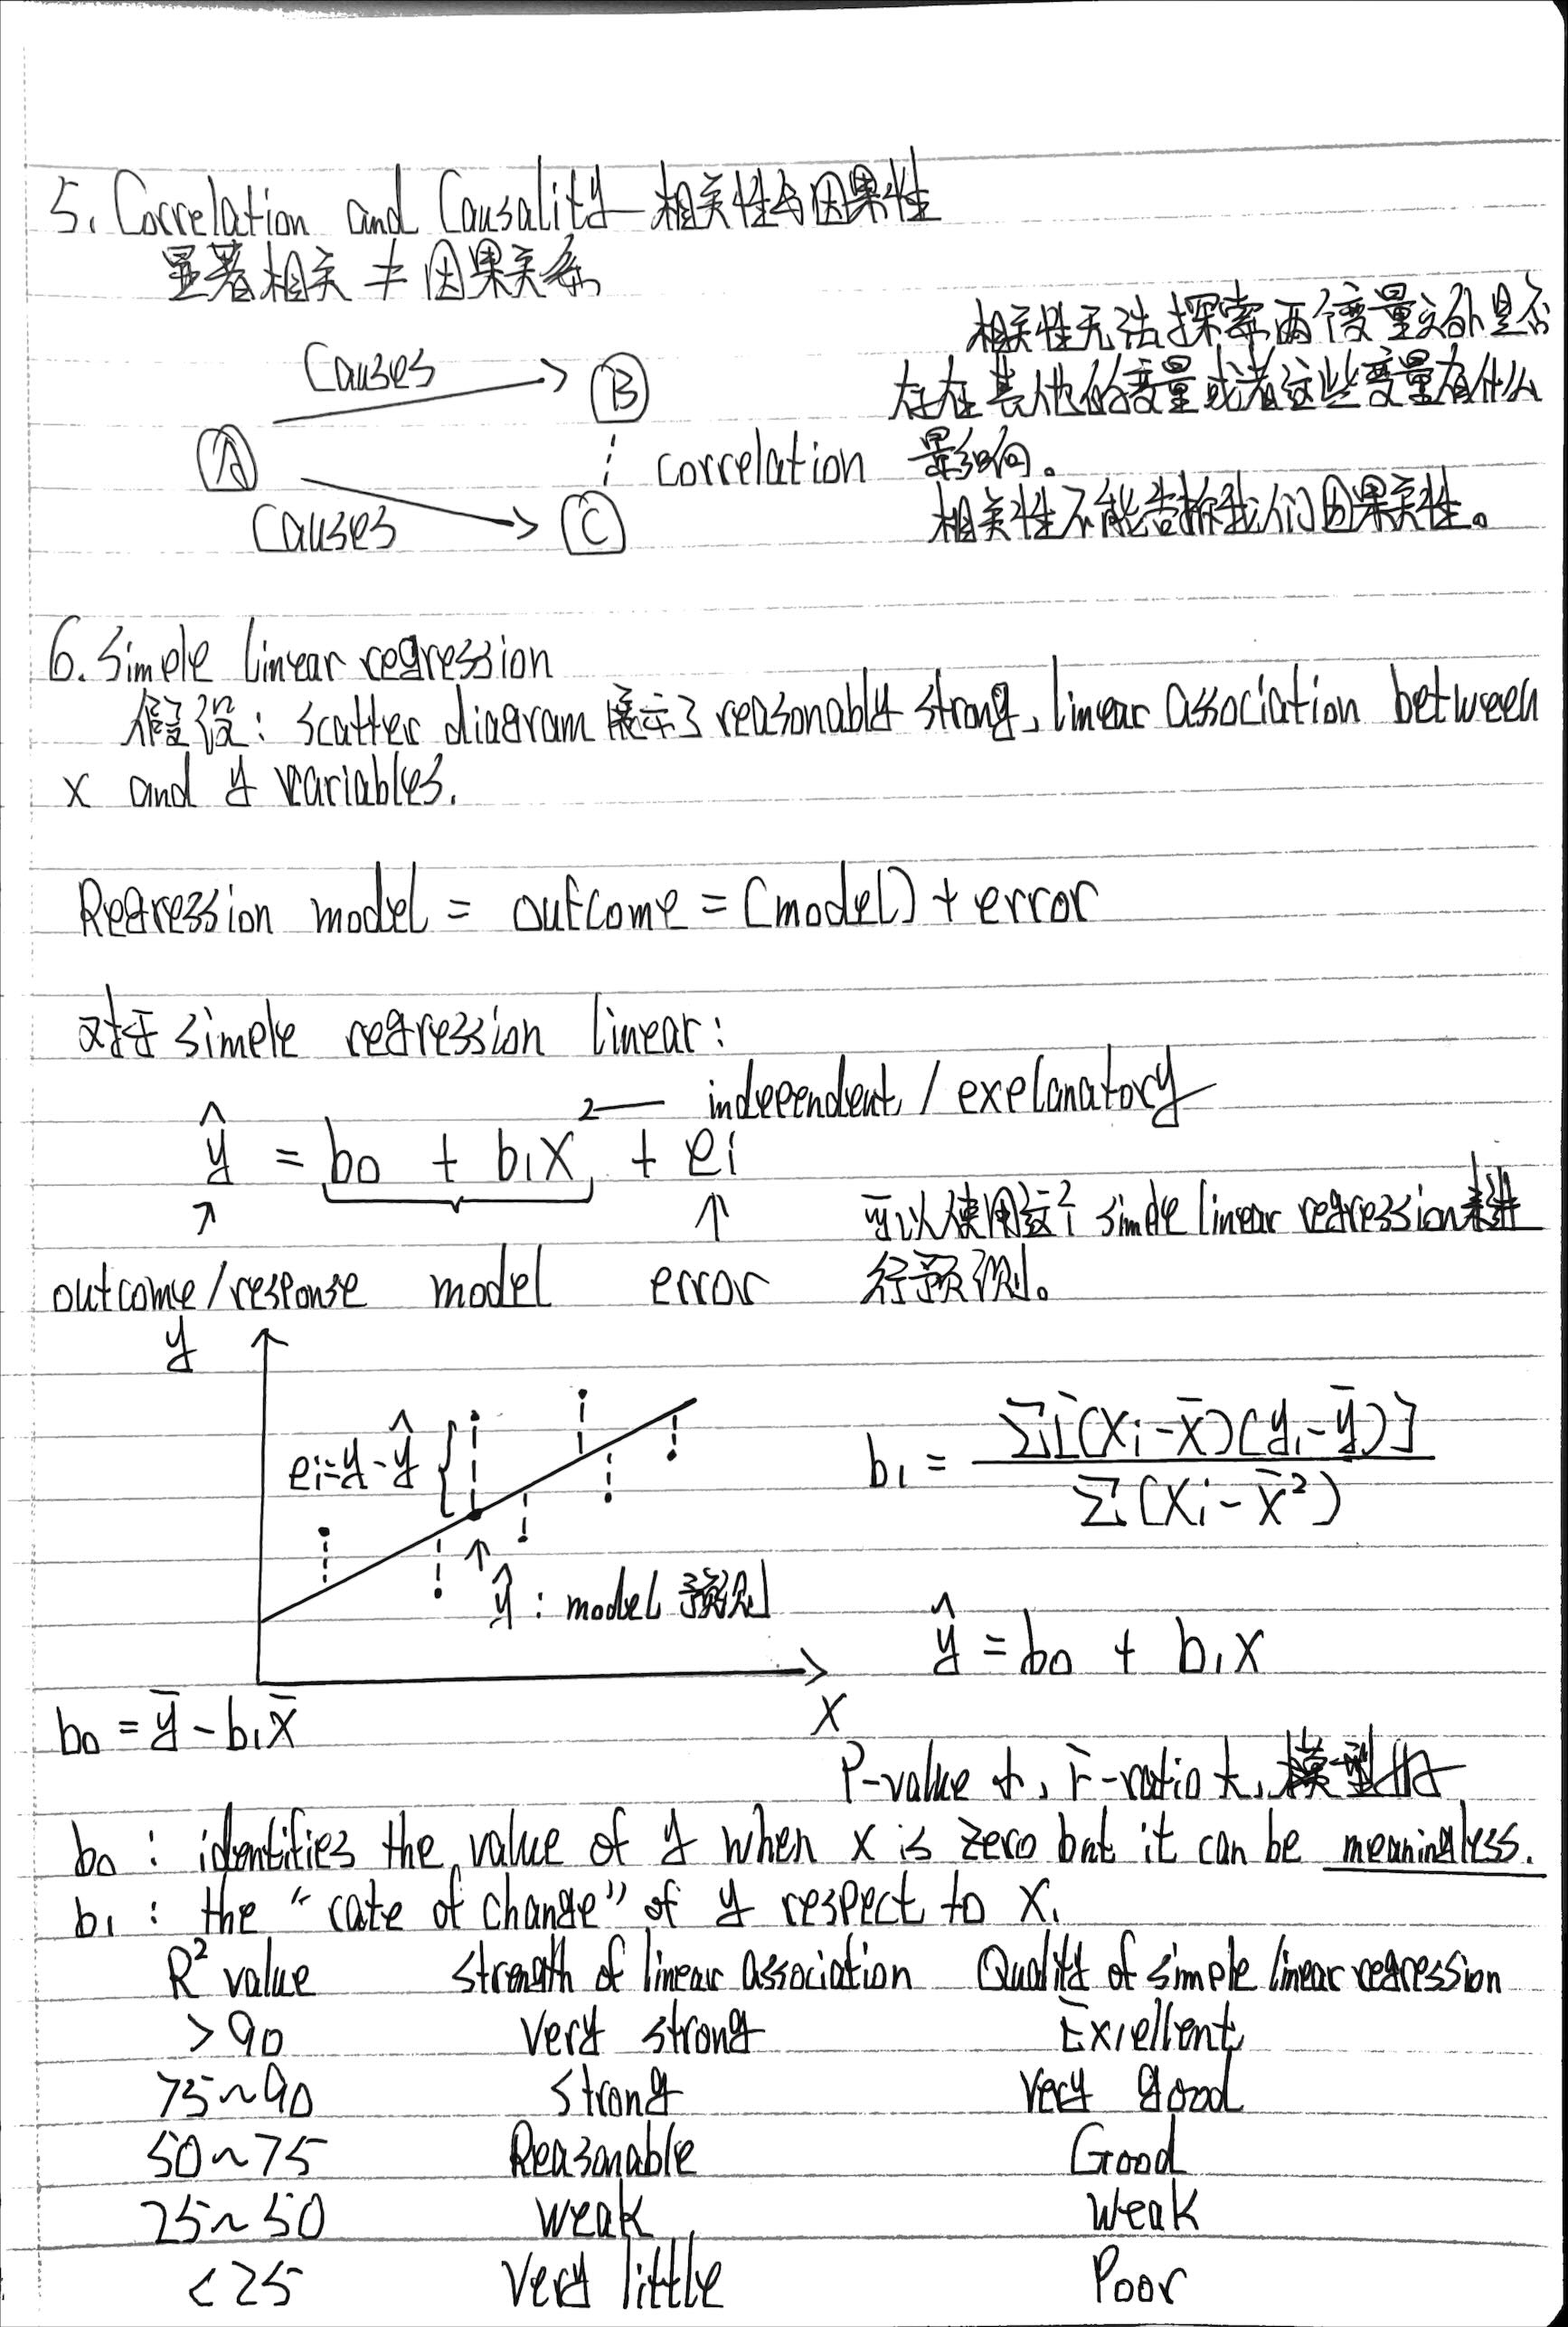 5. Correlation and Causality 相关性与因果性
显著相关 ≠ 因果关系
相关性无法探索两个变量之外是否
存在其他的变量或者这些变量有什么
影响。
相关性不能告诉我们因果关性。
Causes
B
A
correlation
Causes
C
6. Simple linear regression
假设: scatter diagram 展示了 reasonably strong, linear association between
x and y variables.
Regression model = outcome = (model) + error
对于 simple regression linear:
independent / explanatory
ŷ = b0 + b1x + ei
outcome/response model error
可以使用这个 simple linear regression 来进
行预测。
y
ei=y-ŷ
ŷ: model 预测
x
b1 = Σ[(xi-x̄)(yi-ȳ)] / Σ(xi-x̄²)
ŷ = b0 + b1x
b0 = ȳ - b1x̄
P-value 小, F-ratio 大, 模型
b0: identifies the value of y when x is zero but it can be meaningless.
b1: the "rate of change" of y respect to x.
R² value Strength of linear association Quality of simple linear regression
>90 Very strong Excellent
75~90 Strong Very good
50~75 Reasonable Good
25~50 weak Weak
<25 Very little Poor